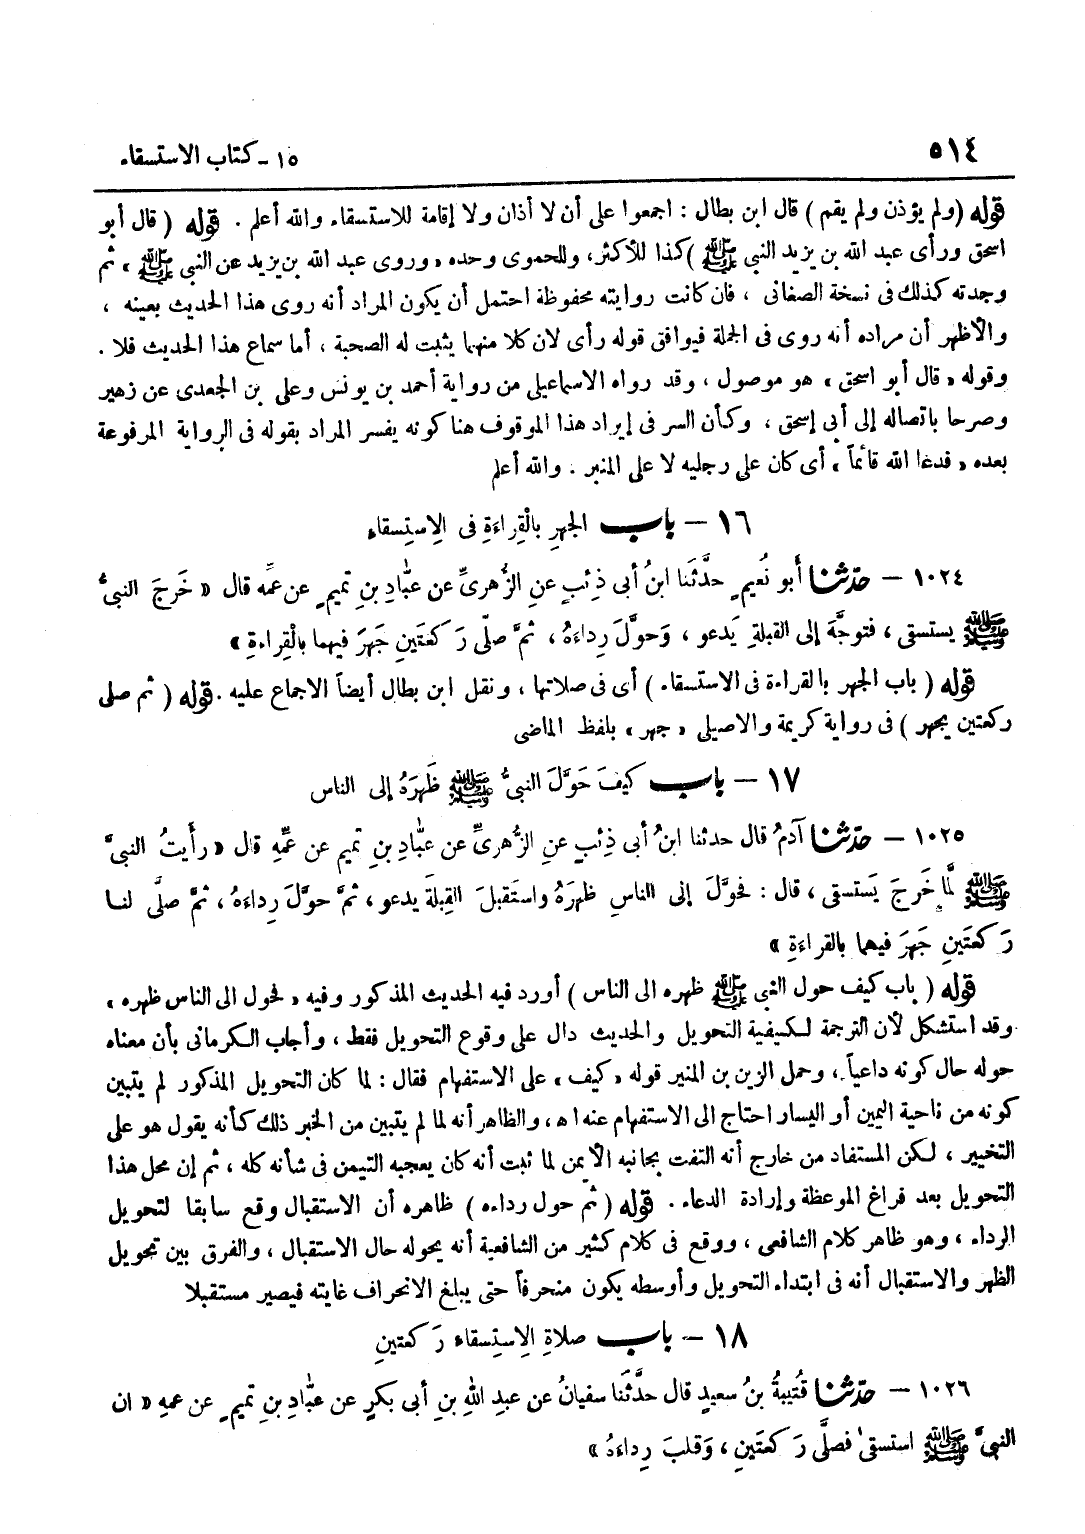 ٥١٤
١٥ - كتاب الاستسقاء
قوله (ولم يؤذن ولم يقم) قال ابن بطال : اجمعوا على أن لا أذان ولا إقامة للاستسقاء والله أعلم . قوله ( قال أبو
اسحق ورأى عبد الله بن يزيد النبي ﷺ )كذا للأكثر، وللحموى وحده « وروى عبد الله بن يزيد عن النبي ﷺ » ثم
وجدته كذلك فى نسخة الصغانى ، فان كانت روايته محفوظة احتمل أن يكون المراد أنه روى هذا الحديث بعينه ،
والأظهر أن مراده أنه روى فى الجملة فيوافق قوله رأى لان كلا منهما يثبت له الصحبة ، أما سماع هذا الحديث فلا .
وقوله « قال أبو اسحق » هو موصول ، وقد رواه الاسماعيلى من رواية أحمد بن يونس وعلى بن الجعدى عن زهير
وصرحا باتصاله إلى أبى إسحق ، وكأن السر فى إيراد هذا الموقوف هنا كونه يفسر المراد بقوله فى الرواية المرفوعة
بعده « فدعا الله قائماً » أى كان على رجليه لا على المنبر . والله أعلم
١٦ - باب الجهرِ بالْقِراءَةِ فى الِاستِسقاءِ
١٠٢٤ - حدّثنا أبو نُعيمٍ حدَّثَنا ابنُ أبى ذِئبٍ عنِ الزُّهرىِّ عن عبّادِ بنِ تميمٍ عن عمِّه قال « خَرجَ النبىُّ
ﷺ يستسقى ، فتوجَّهَ إلى القبلةِ يَدعو ، وَحوَّلَ رِداءَهُ ، ثمَّ صلّى رَكعتَينِ جَهرَ فيهما بالْقِراءةِ »
قوله ( باب الجهر بالقراءة فى الاستسقاء ) أى فى صلاتها ، ونقل ابن بطال أيضاً الاجماع عليه . قوله ( ثم صلى
ركعتين يجهر ) فى رواية كريمة والاصيلى « جهر » بلفظ الماضى
١٧ - باب كيفَ حَوَّلَ النبىُّ ﷺ ظَهرَهُ إلى الناس
١٠٢٥ - حدّثنا آدمُ قال حدثنا ابنُ أبى ذِئبٍ عنِ الزُّهرىِّ عن عبّادِ بنِ تميم عن عمِّهِ قال « رأيتُ النبىَّ
ﷺ لمَّا خَرجَ يَستسقى ، قال : فحوَّلَ إلى الناسِ ظهرَهُ واستَقبلَ القِبلةَ يدعو ، ثمَّ حوَّلَ رِداءهُ ، ثمَّ صلَّى لنا
رَكعتَينِ جَهرَ فيهما بالقراءةِ »
قوله ( باب كيف حول النبى ﷺ ظهره الى الناس ) أورد فيه الحديث المذكور وفيه « فحول الى الناس ظهره »
وقد استشكل لأن الترجمة لكيفية التحويل والحديث دال على وقوع التحويل فقط ، وأجاب الكرمانى بأن معناه
حوله حال كونه داعياً ، وحمل الزين بن المنير قوله « كيف » على الاستفهام فقال : لما كان التحويل المذكور لم يتبين
كونه من ناحية اليمين أو اليسار احتاج الى الاستفهام عنه اه ، والظاهر أنه لما لم يتبين من الخبر ذلك كأنه يقول هو على
التخيير ، لكن المستفاد من خارج أنه التفت بجانبه الأيمن لما ثبت أنه كان يعجبه التيمن فى شأنه كله ، ثم إن محل هذا
التحويل بعد فراغ الموعظة وإرادة الدعاء . قوله ( ثم حول رداءه ) ظاهره أن الاستقبال وقع سابقا لتحويل
الرداء ، وهو ظاهر كلام الشافعى ، ووقع فى كلام كثير من الشافعية أنه يحوله حال الاستقبال ، والفرق بين تحويل
الظهر والاستقبال أنه فى ابتداء التحويل وأوسطه يكون منحرفاً حتى يبلغ الانحراف غايته فيصير مستقبلا
١٨ - باب صلاةِ الِاستِسقاء رَكعتينِ
١٠٢٦ - حدّثنا قُتيبةُ بنُ سعيدٍ قال حدَّثَنا سفيانُ عن عبدِ اللهِ بنِ أبى بكرٍ عن عبّادِ بنِ تميمٍ عن عمهِ « ان
النبىَّ ﷺ استسقىٰ فصلَّى رَكعتَينِ ، وَقلبَ رِداءَهُ »